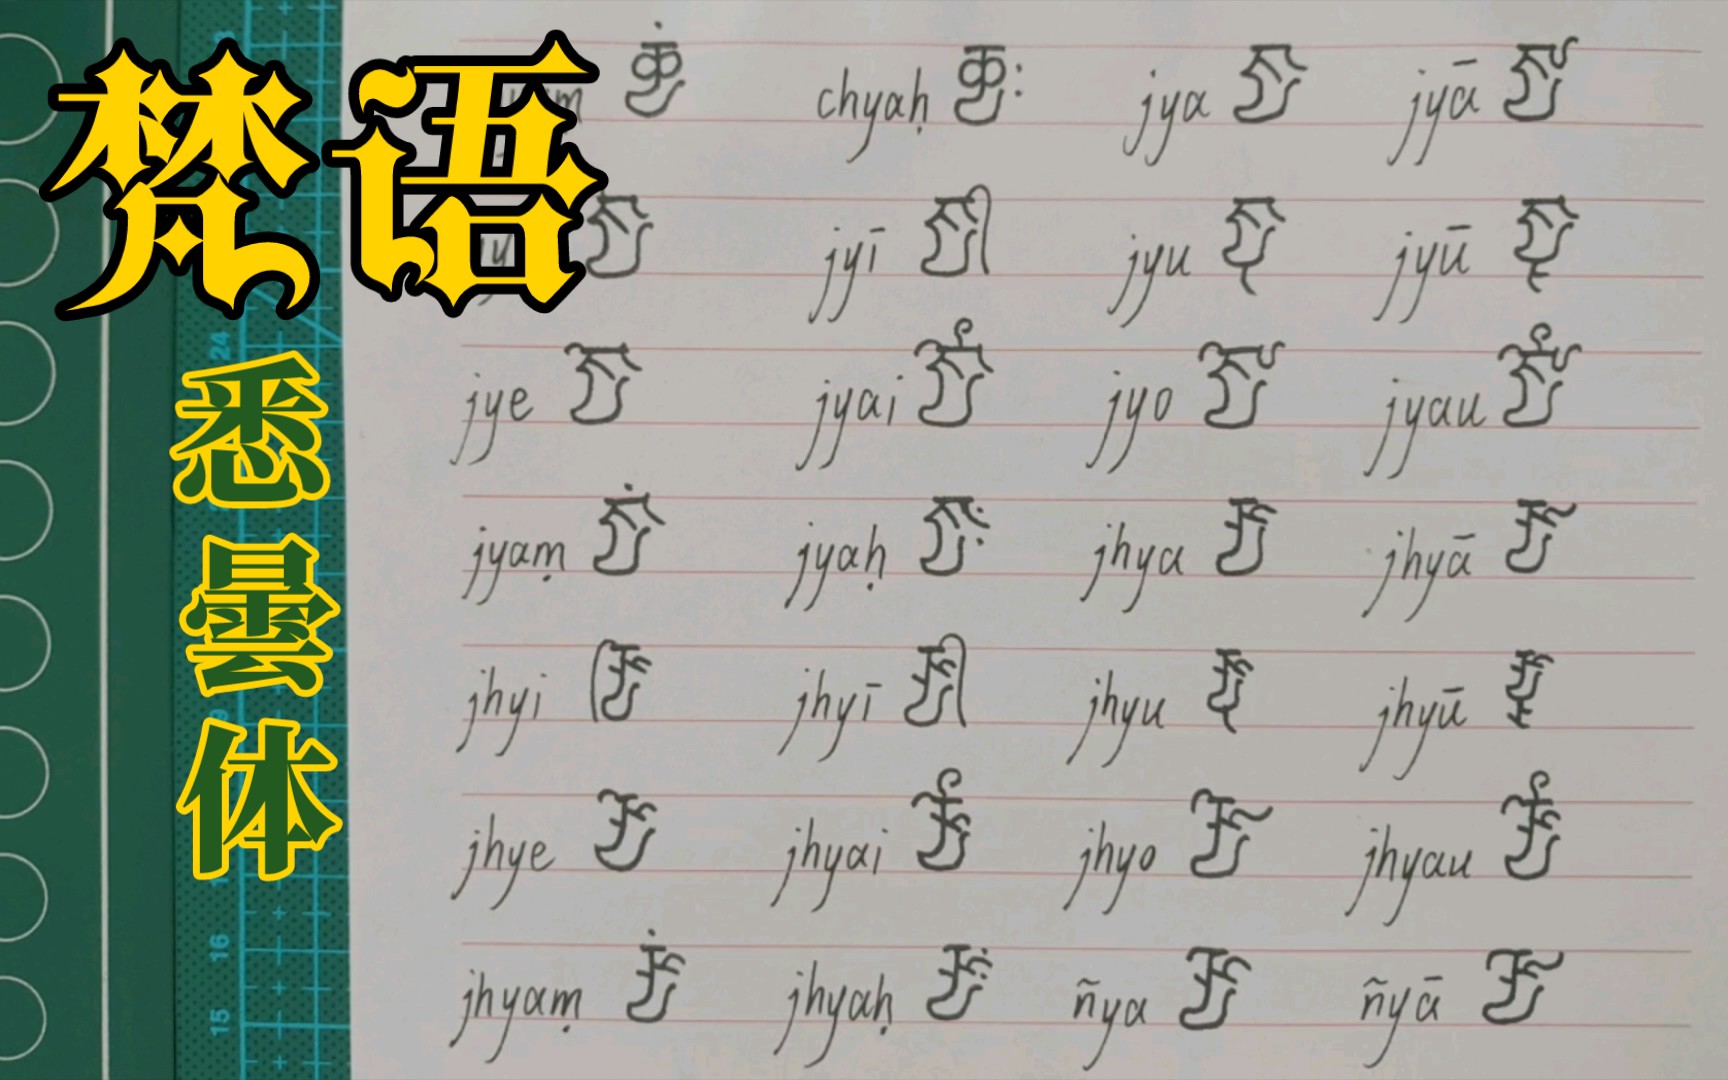 梵语
悉昙体
chyaḥ 𑖔𑖿𑖧𑖾 jya 𑖕𑖿𑖧 jyā 𑖕𑖿𑖧𑖯
jyī 𑖕𑖿𑖧𑖱 jyu 𑖕𑖿𑖧𑖲 jyū 𑖕𑖿𑖧𑖳
jye 𑖕𑖿𑖧𑖸 jyai 𑖕𑖿𑖧𑖹 jyo 𑖕𑖿𑖧𑖺 jyau 𑖕𑖿𑖧𑖻
jyaṃ 𑖕𑖿𑖧𑖽 jyaḥ 𑖕𑖿𑖧𑖾 jhya 𑖖𑖿𑖧 jhyā 𑖖𑖿𑖧𑖯
jhyi 𑖖𑖿𑖧𑖰 jhyī 𑖖𑖿𑖧𑖱 jhyu 𑖖𑖿𑖧𑖲 jhyū 𑖖𑖿𑖧𑖳
jhye 𑖖𑖿𑖧𑖸 jhyai 𑖖𑖿𑖧𑖹 jhyo 𑖖𑖿𑖧𑖺 jhyau 𑖖𑖿𑖧𑖻
jhyaṃ 𑖖𑖿𑖧𑖽 jhyaḥ 𑖖𑖿𑖧𑖾 ñya 𑖗𑖿𑖧 ñyā 𑖗𑖿𑖧𑖯
24
16
15